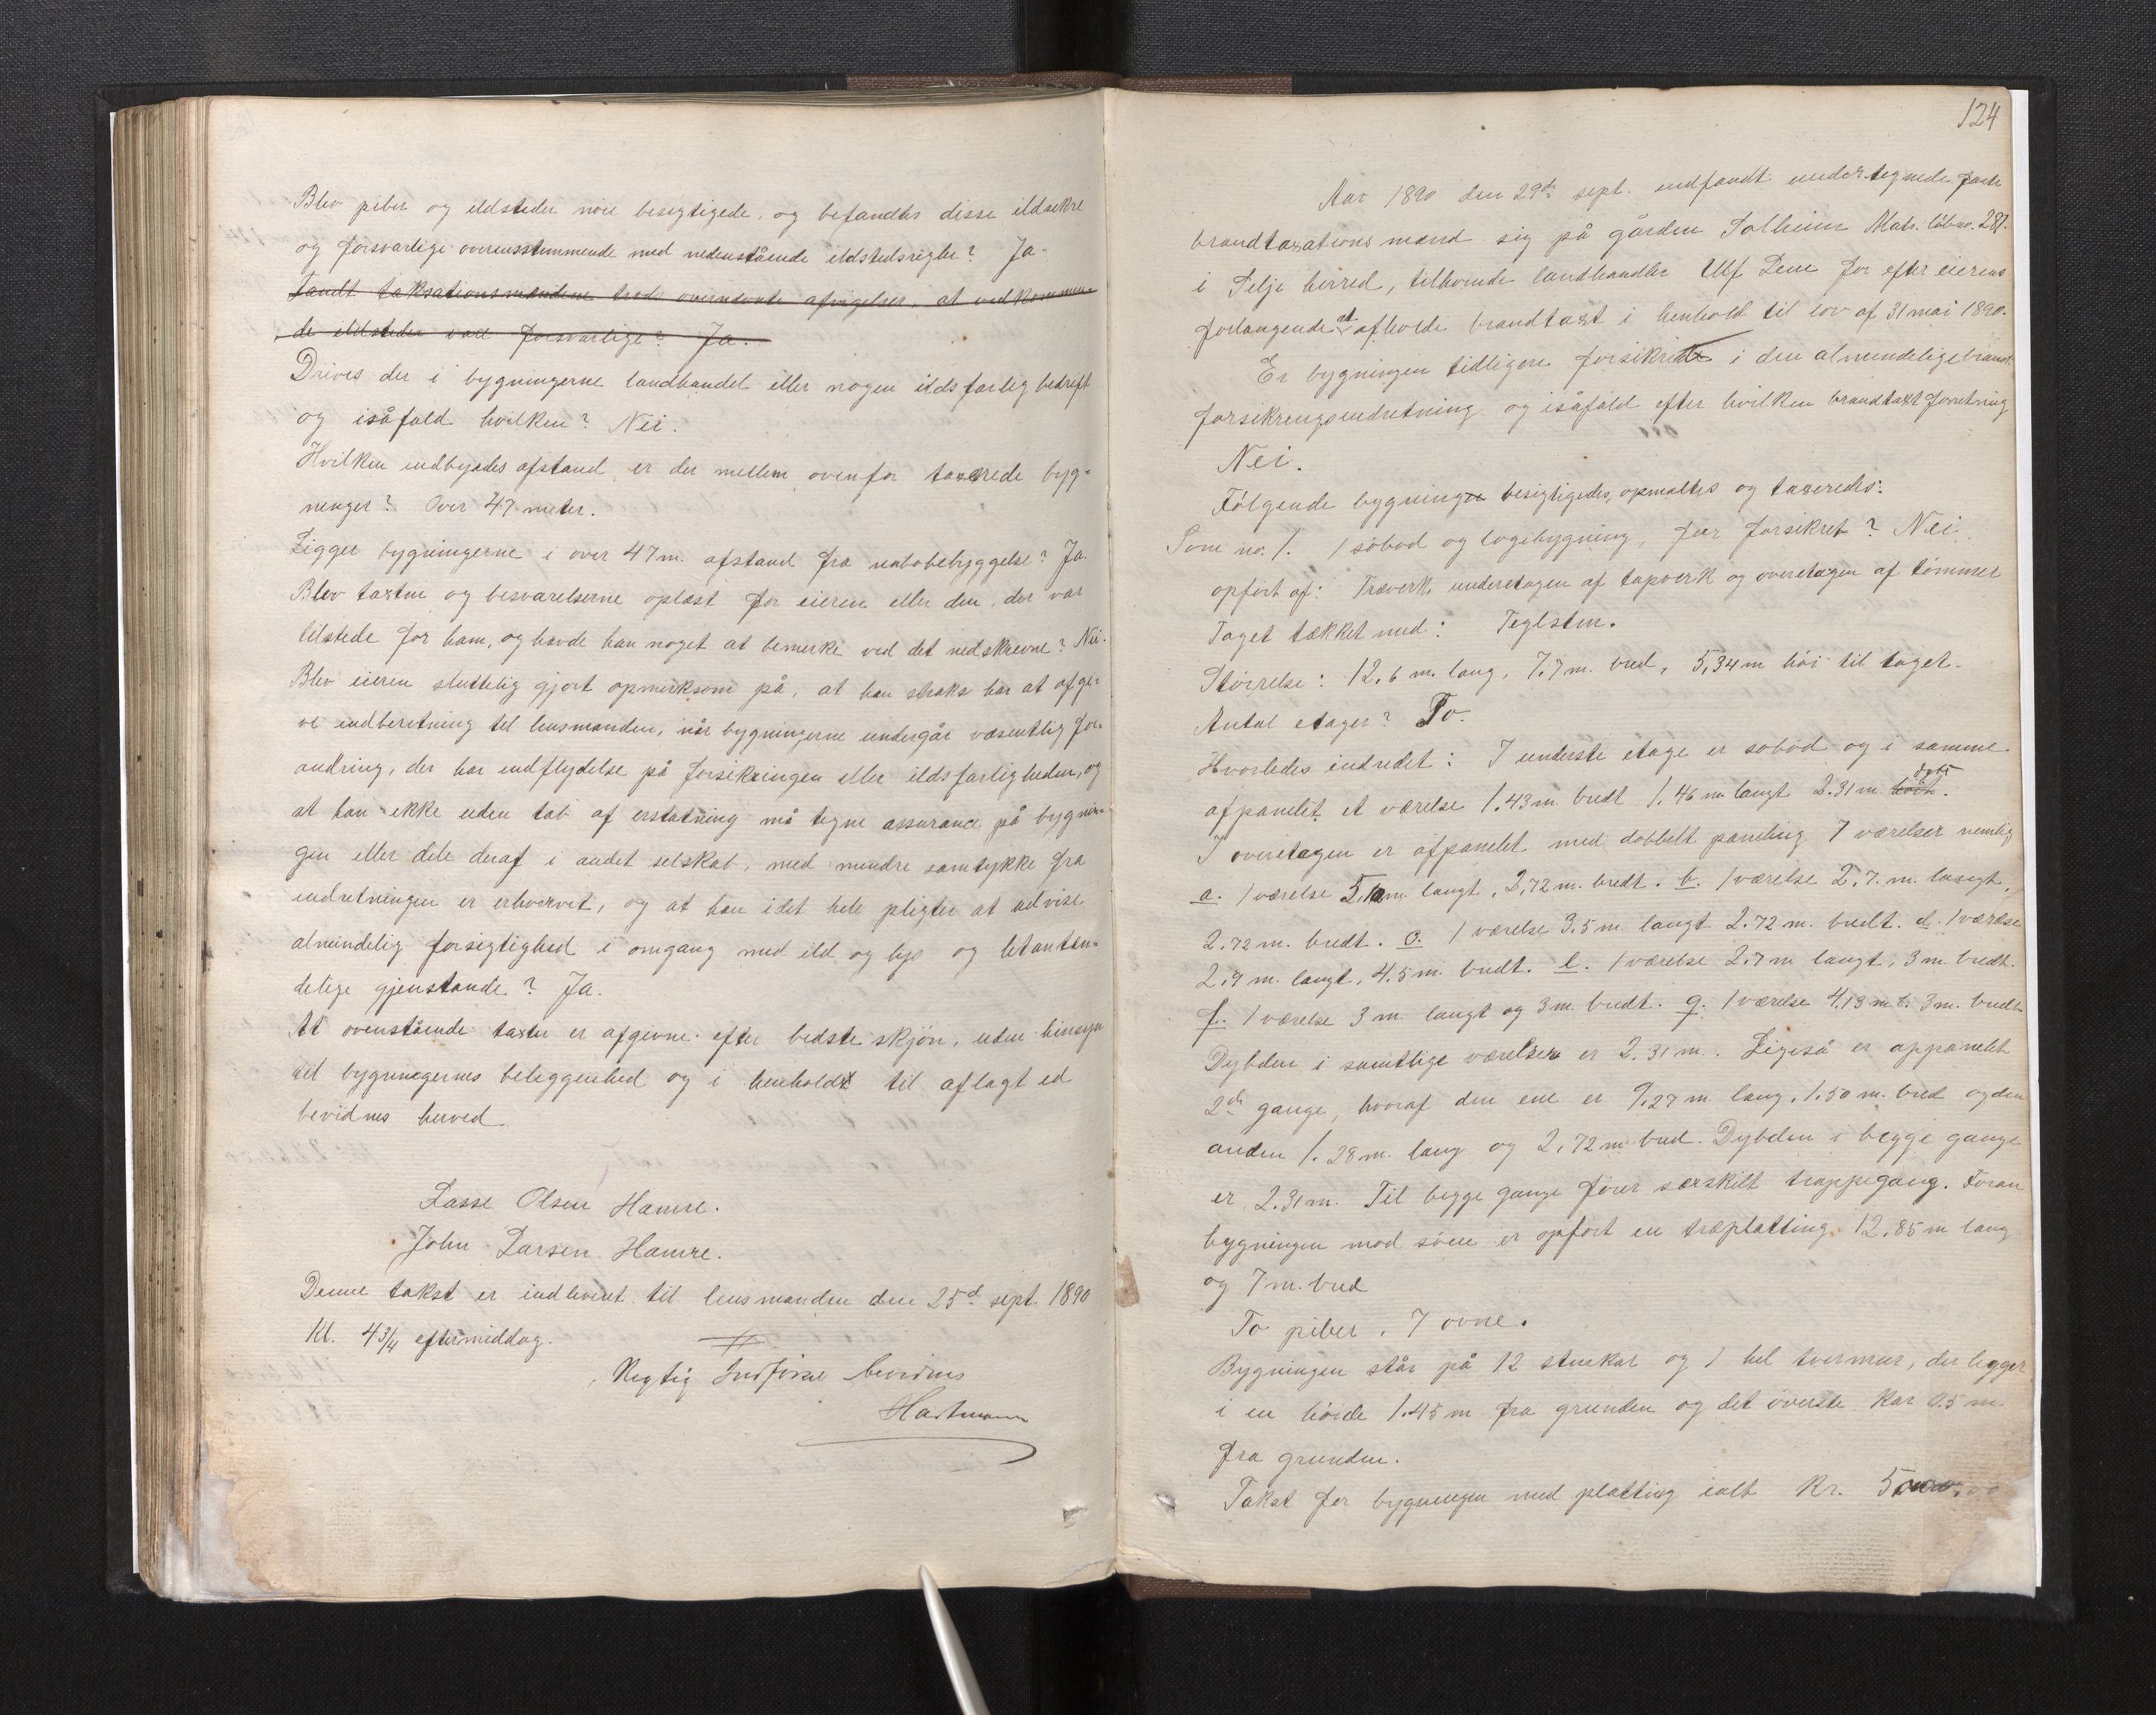 Blev piber og ildsteder nöie besigtigede, og befandtes disse ildsikre
og forsvarlige overensstemmende med nedenstående ildstedsregler? Ja.
Fandt taksationsmændene trods ovennevnte afvigelser, at vedkommen-
de ildsteder vare forsvarlige? Ja.
Drives der i bygningerne landhandel eller nogen ildsfarlig bedrift
og isåfald hvilken? Nei.
Hvilken indbyrdes afstand er der mellem ovenfor taxerede byg-
ninger? Over 47 meter.
Ligger bygningerne i over 47 m. afstand fra nabobebyggelse? Ja
Blev taxten og besvarelserne oplæst for eieren eller den, der var
tilstede for ham, og havde han noget at bemerke ved det nedskrevne? Nei.
Blev eieren sluttelig gjort opmerksom på, at han straks har at afgi-
ve indberetning til lensmanden, når bygningerne undergår væsentlig for-
andring, der har indflydelse på forsikringen eller ildsfarligheden, og
at han ikke uden tab af erstatning må tegne assurance på bygnin-
gen eller dele deraf i andet selskab, med mindre samtykke fra
indretningen er erhvervet, og at han i det hele pligter at udvise
almindelig forsigtighed i omgang med ild og lys og letanten-
delige gjenstande? Ja.
At ovenstående taxter er afgivne efter bedste skjön, uden hinsyn
til bygningernes beliggenhed og i henhold til aflagt ed
bevidnes herved
Lasse Olsen Hamre.
John Larsen Hamre.
Denne takst er indleveret til lensmanden den 25d sept. 1890
Kl. 4 3/4 eftermiddag.
Rigtig Indförsel bevidnes
Hartmann
124
Aar 1890 den 29de sept. indfandt undertegnede faste
brandtaxationsmænd sig på gården Solheim Matr. löbno. 281.
i Selje herred, tilhörende landhandler Ulf Dene for efter eierens
forlangende at afholde brandtaxt i henhold til lov af 31 mai 1890.
Er bygningen tidligere forsikret i den almindelige brand-
forsikringsindretning og isåfald efter hvilken brandtaxtforretning
Nei.
Fölgende bygning besigtigedes, opmaltes og taxeredes:
Som no. 1. 1 söbod og logibygning, för forsikret? Nei.
opfört af: Træverk, underetagen af tapverk og overetagen af tömmer
Taget tækket med: Teglsten.
Störrelse: 12,6 m. lang, 7,7 m. bred, 5,34 m höi til taget.
Antal etager? To.
Hvorledes indredet: I underste etage er söbod og i samme
afpanelet et værelse 1.43 m bredt 1.46 m langt 2.31 m höit dybt.
I overetagen er afpanelet med dobbelt paneling 7 værelser nemlig
a. 1 værelse m. langt, 2,72 m. bredt. b. 1 værelse 2.7. m. langt,
2.72 m. bredt. c. 1 værelse 3.5 m. langt 2.72 m. bredt. d. 1 værelse
2.7 m. langt, 4.5 m. bredt. e. 1 værelse 2.7 m langt, 3 m bredt.
f. 1 værelse 3 m. langt og 3 m. bredt. g. 1 værelse 4,13 m l. 3 m. bredt
Dybden i samtlige værelser er 2.31 m. Ligeså er appanelet
2de gange, hvoraf den ene er 9.27 m lang, 1.50 m. bred og den
anden 1.28 m. lang og 2,72 m bred. Dybden i begge gange
er 2.31 m. Til begge gange förer særskilt trappegang. Foran
bygningen mod söen er opfört en træplatting 12.85 m lang
og 7 m. bred
To piber. 7 ovne.
Bygningen står på 12 stenkar og 1 hel tvermur, der ligger
i en höide 1.45 m fra grunden og det överste kar 0.5 m
fra grunden.
Takst for bygningen med platting ialt Kr. 5000,00